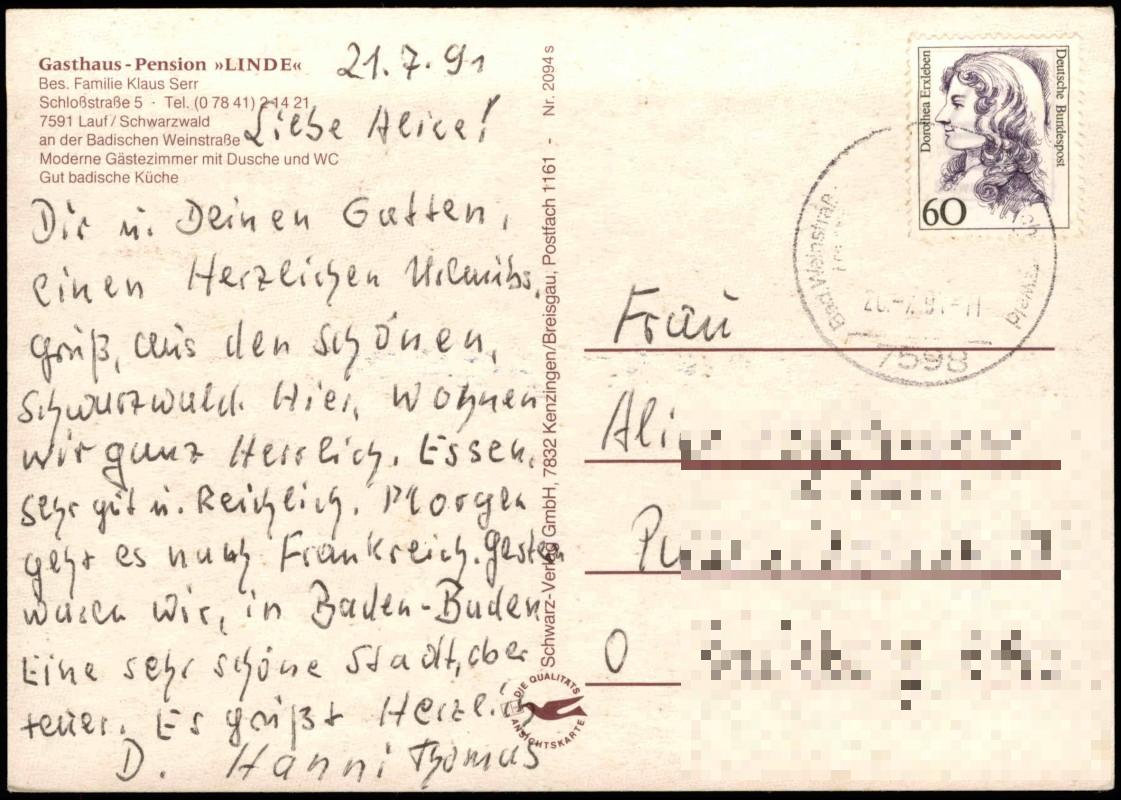 Gasthaus-Pension »LINDE«
Bes. Familie Klaus Serr
Schloßstraße 5 · Tel. (0 78 41) 2 14 21
7591 Lauf/Schwarzwald
an der Badischen Weinstraße
Moderne Gästezimmer mit Dusche und WC
Gut badische Küche
21.7.91
Liebe Alice!
Dir u. Deinen Gatten,
einen Herzlichen Urlaubs,
grüß, aus den schönen,
Schwarzwald. Hier, Wohnen
wir ganz Herrlich. Essen,
sehr gut u. Reichlich. Morgen
geht es nach Frankreich. Gestern
waren wir, in Baden-Baden
Eine sehr schöne Stadt, aber
teuer. Es grüßt Herzlich
D. Hanni Thomas
Schwarz-Verlag GmbH, 7832 Kenzingen/Breisgau, Postfach 1161 - Nr. 2094 s
DIE QUALITÄTS
ANSICHTSKARTE
Dorothea Erxleben
Deutsche Bundespost
60
Bad Weinstraße
7598
Frau
Ali
O